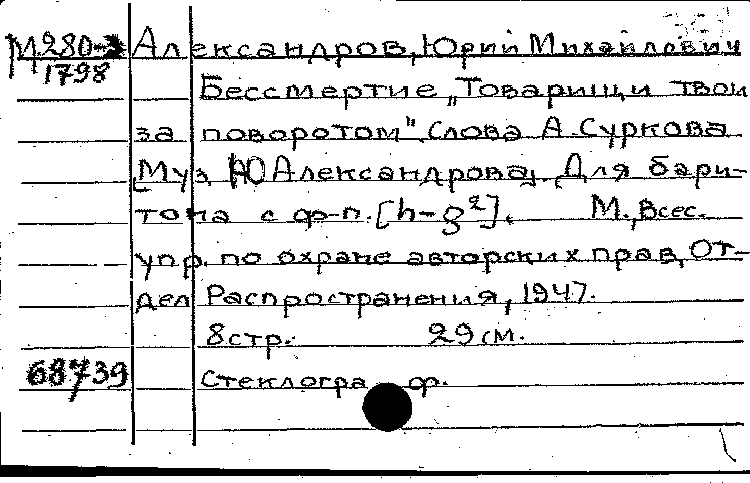 М.280-3 Александров, Юрий Михайлович
1798
Бессмертие „Товарищи твои
за поворотом". Слова А. Суркова
[Муз. Ю Александрова]. Для бари-
тона с ф-п. [h-g²]. М., Всес.
упр. по охране авторских прав, От-
дел Распространения, 1947.
8 стр. 29 см.
68739 Стеклогра ф.